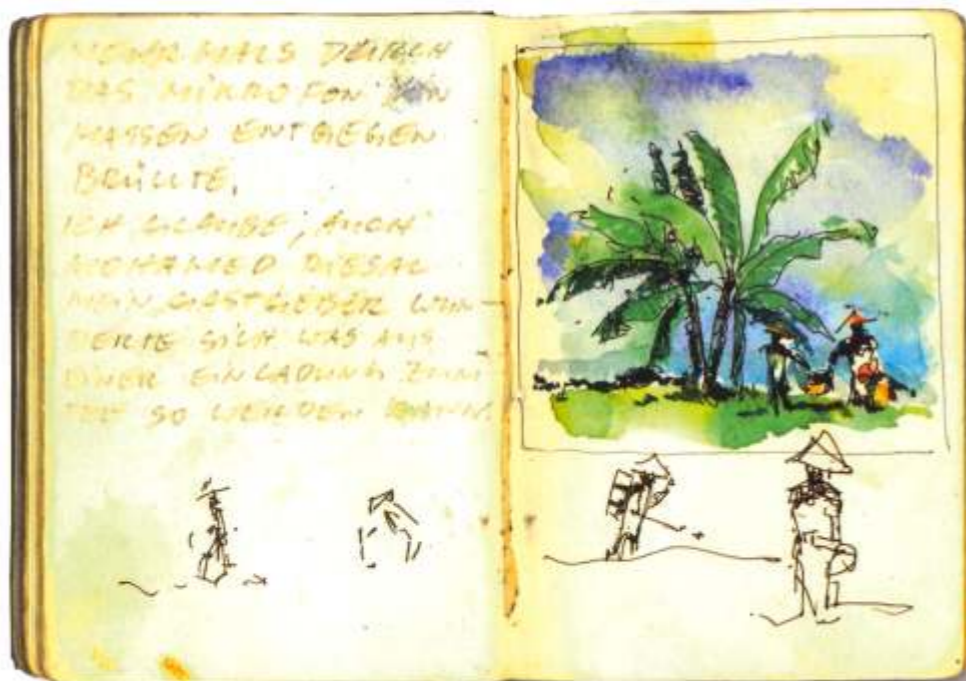 DAS MIKROFON
MASSEN ENTGEGEN
BRÜLLTE.
ICH GLAUBE, AUCH
MOHAMED
MEIN GASTGEBER WUN-
DERTE SICH WAS AUS
EINER EINLADUNG ZUM
TEE SO WERDEN KANN.